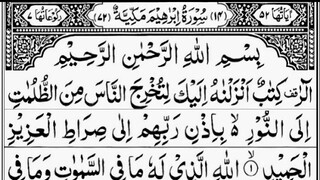 اٰیَاتُهَا ٥٢ (١٤) سُوْرَةُ اِبْرٰهِیْمَ مَكِّیَّةٌ (٧٢) رُكُوْعَاتُهَا ٧
بِسْمِ اللّٰهِ الرَّحْمٰنِ الرَّحِیْمِ
الٓرٰ قف كِتٰبٌ اَنْزَلْنٰهُ اِلَیْكَ لِتُخْرِجَ النَّاسَ مِنَ الظُّلُمٰتِ
اِلَی النُّوْرِ ۙ۬ بِاِذْنِ رَبِّهِمْ اِلٰی صِرَاطِ الْعَزِیْزِ
الْحَمِیْدِ ۙ ﴿١﴾ اللّٰهِ الَّذِیْ لَهٗ مَا فِی السَّمٰوٰتِ وَمَا فِی